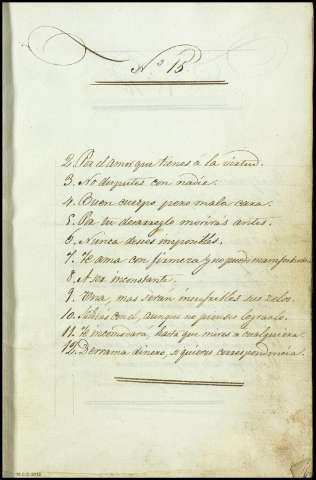 N.º 15
2. Por el amor que tienes á la virtud.
3. No disputes con nadie.
4. Buen cuerpo pero mala cara.
5. Por tu desarreglo morirás antes.
6. Nunca desees imposibles.
7. Te ama con firmeza y no puede manifestarlo.
8. A ser inconstante.
9. Una, mas serán insufribles sus zelos.
10. Saldrás con el, aunque no pienses lograrlo.
11. Te incomodará, hasta que mires a cualquiera.
12. Derrama dinero, si quieres correspondencia.